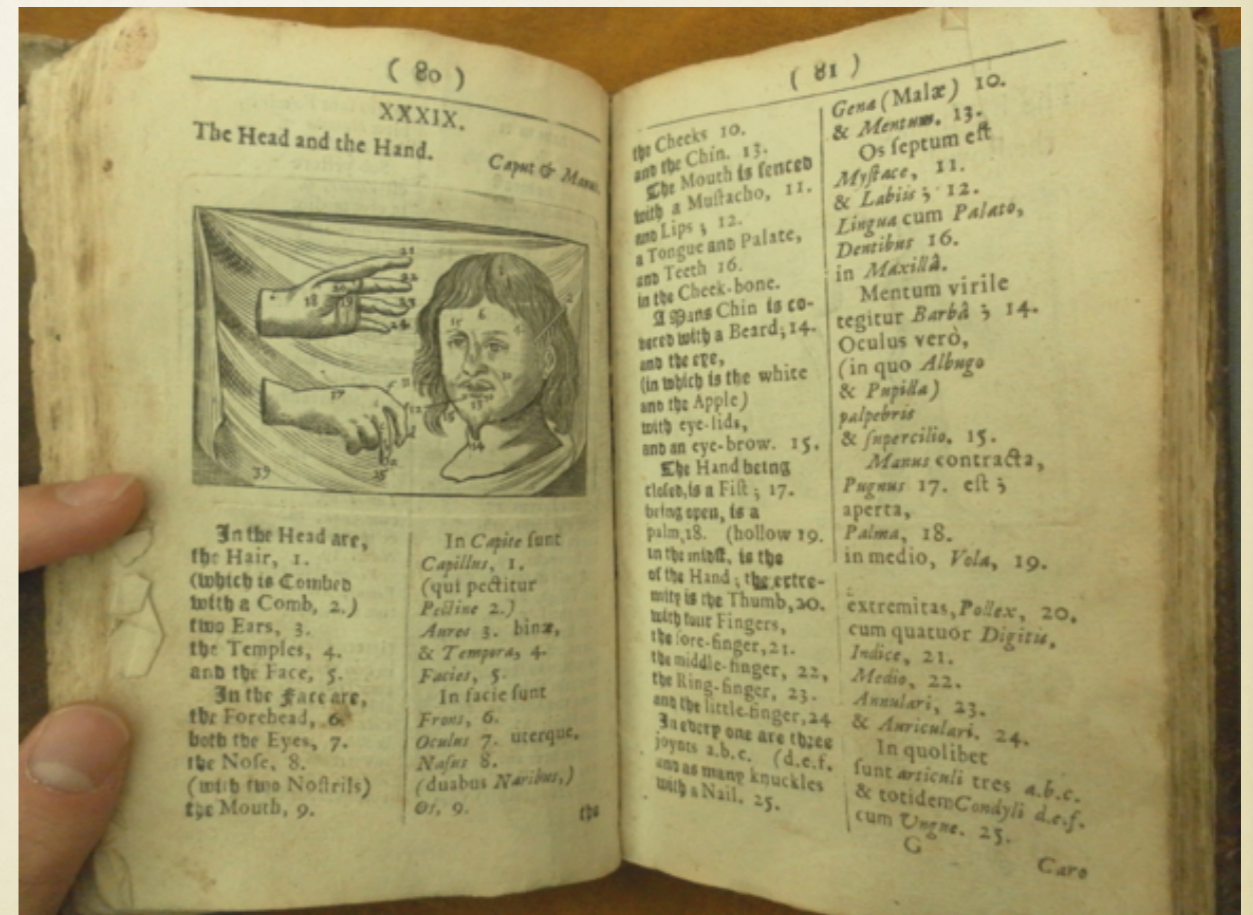 ( 80 )
XXXIX.
The Head and the Hand.
Caput & Manus.
39
In the Head are,
the Hair, 1.
(which is Combed
with a Comb, 2.)
two Ears, 3.
the Temples, 4.
and the Face, 5.
In the Face are,
the Forehead, 6.
both the Eyes, 7.
the Noſe, 8.
(with two Noſtrils)
the Mouth, 9.
In Capite ſunt
Capillus, 1.
(qui pectitur
Pectine 2.)
Aures 3. binæ,
& Tempora, 4.
Facies, 5.
In facie ſunt
Frons, 6.
Oculus 7. uterque,
Naſus 8.
(duabus Naribus,)
Os, 9.
the
( 81 )
the Cheeks 10.
and the Chin. 13.
The Mouth is fenced
with a Muſtacho, 11.
and Lips; 12.
a Tongue and Palate,
and Teeth 16.
in the Cheek-bone.
A Mans Chin is co-
vered with a Beard; 14.
and the eye,
(in which is the white
and the Apple)
with eye-lids,
and an eye-brow. 15.
The Hand being
cloſed, is a Fiſt; 17.
being open, is a
palm, 18. (hollow 19.
in the midſt, is the
of the Hand; the extre-
mity is the Thumb, 20.
with four Fingers,
the fore-finger, 21.
the middle-finger, 22,
the Ring-finger, 23.
and the little-finger, 24
In every one are three
joynts a.b.c. (d.e.f.
and as many knuckles
with a Nail. 25.
Gena (Malæ) 10.
& Mentum. 13.
Os ſeptum eſt
Myſtace, 11.
& Labiis; 12.
Lingua cum Palato,
Dentibus 16.
in Maxillâ.
Mentum virile
tegitur Barbâ; 14.
Oculus verò,
(in quo Albugo
& Pupilla)
palpebris
& ſupercilio. 15.
Manus contracta,
Pugnus 17. eſt;
aperta,
Palma, 18.
in medio, Vola, 19.
extremitas, Pollex, 20,
cum quatuor Digitis,
Indice, 21.
Medio, 22.
Annulari, 23.
& Auriculari. 24.
In quolibet
ſunt articuli tres a.b.c.
& totidem Condyli d.e.f.
cum Ungue. 25.
G
Caro